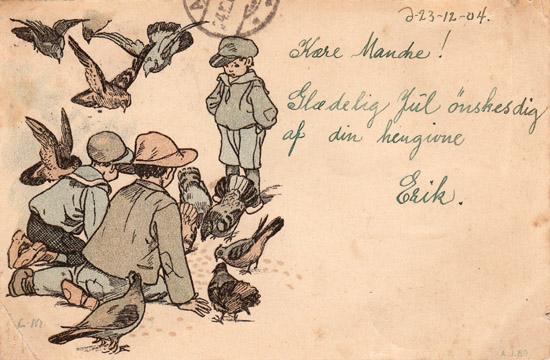 d-23-12-04.
Kære Manche!
Glædelig Jul ønskes dig
af din hengivne
Erik.